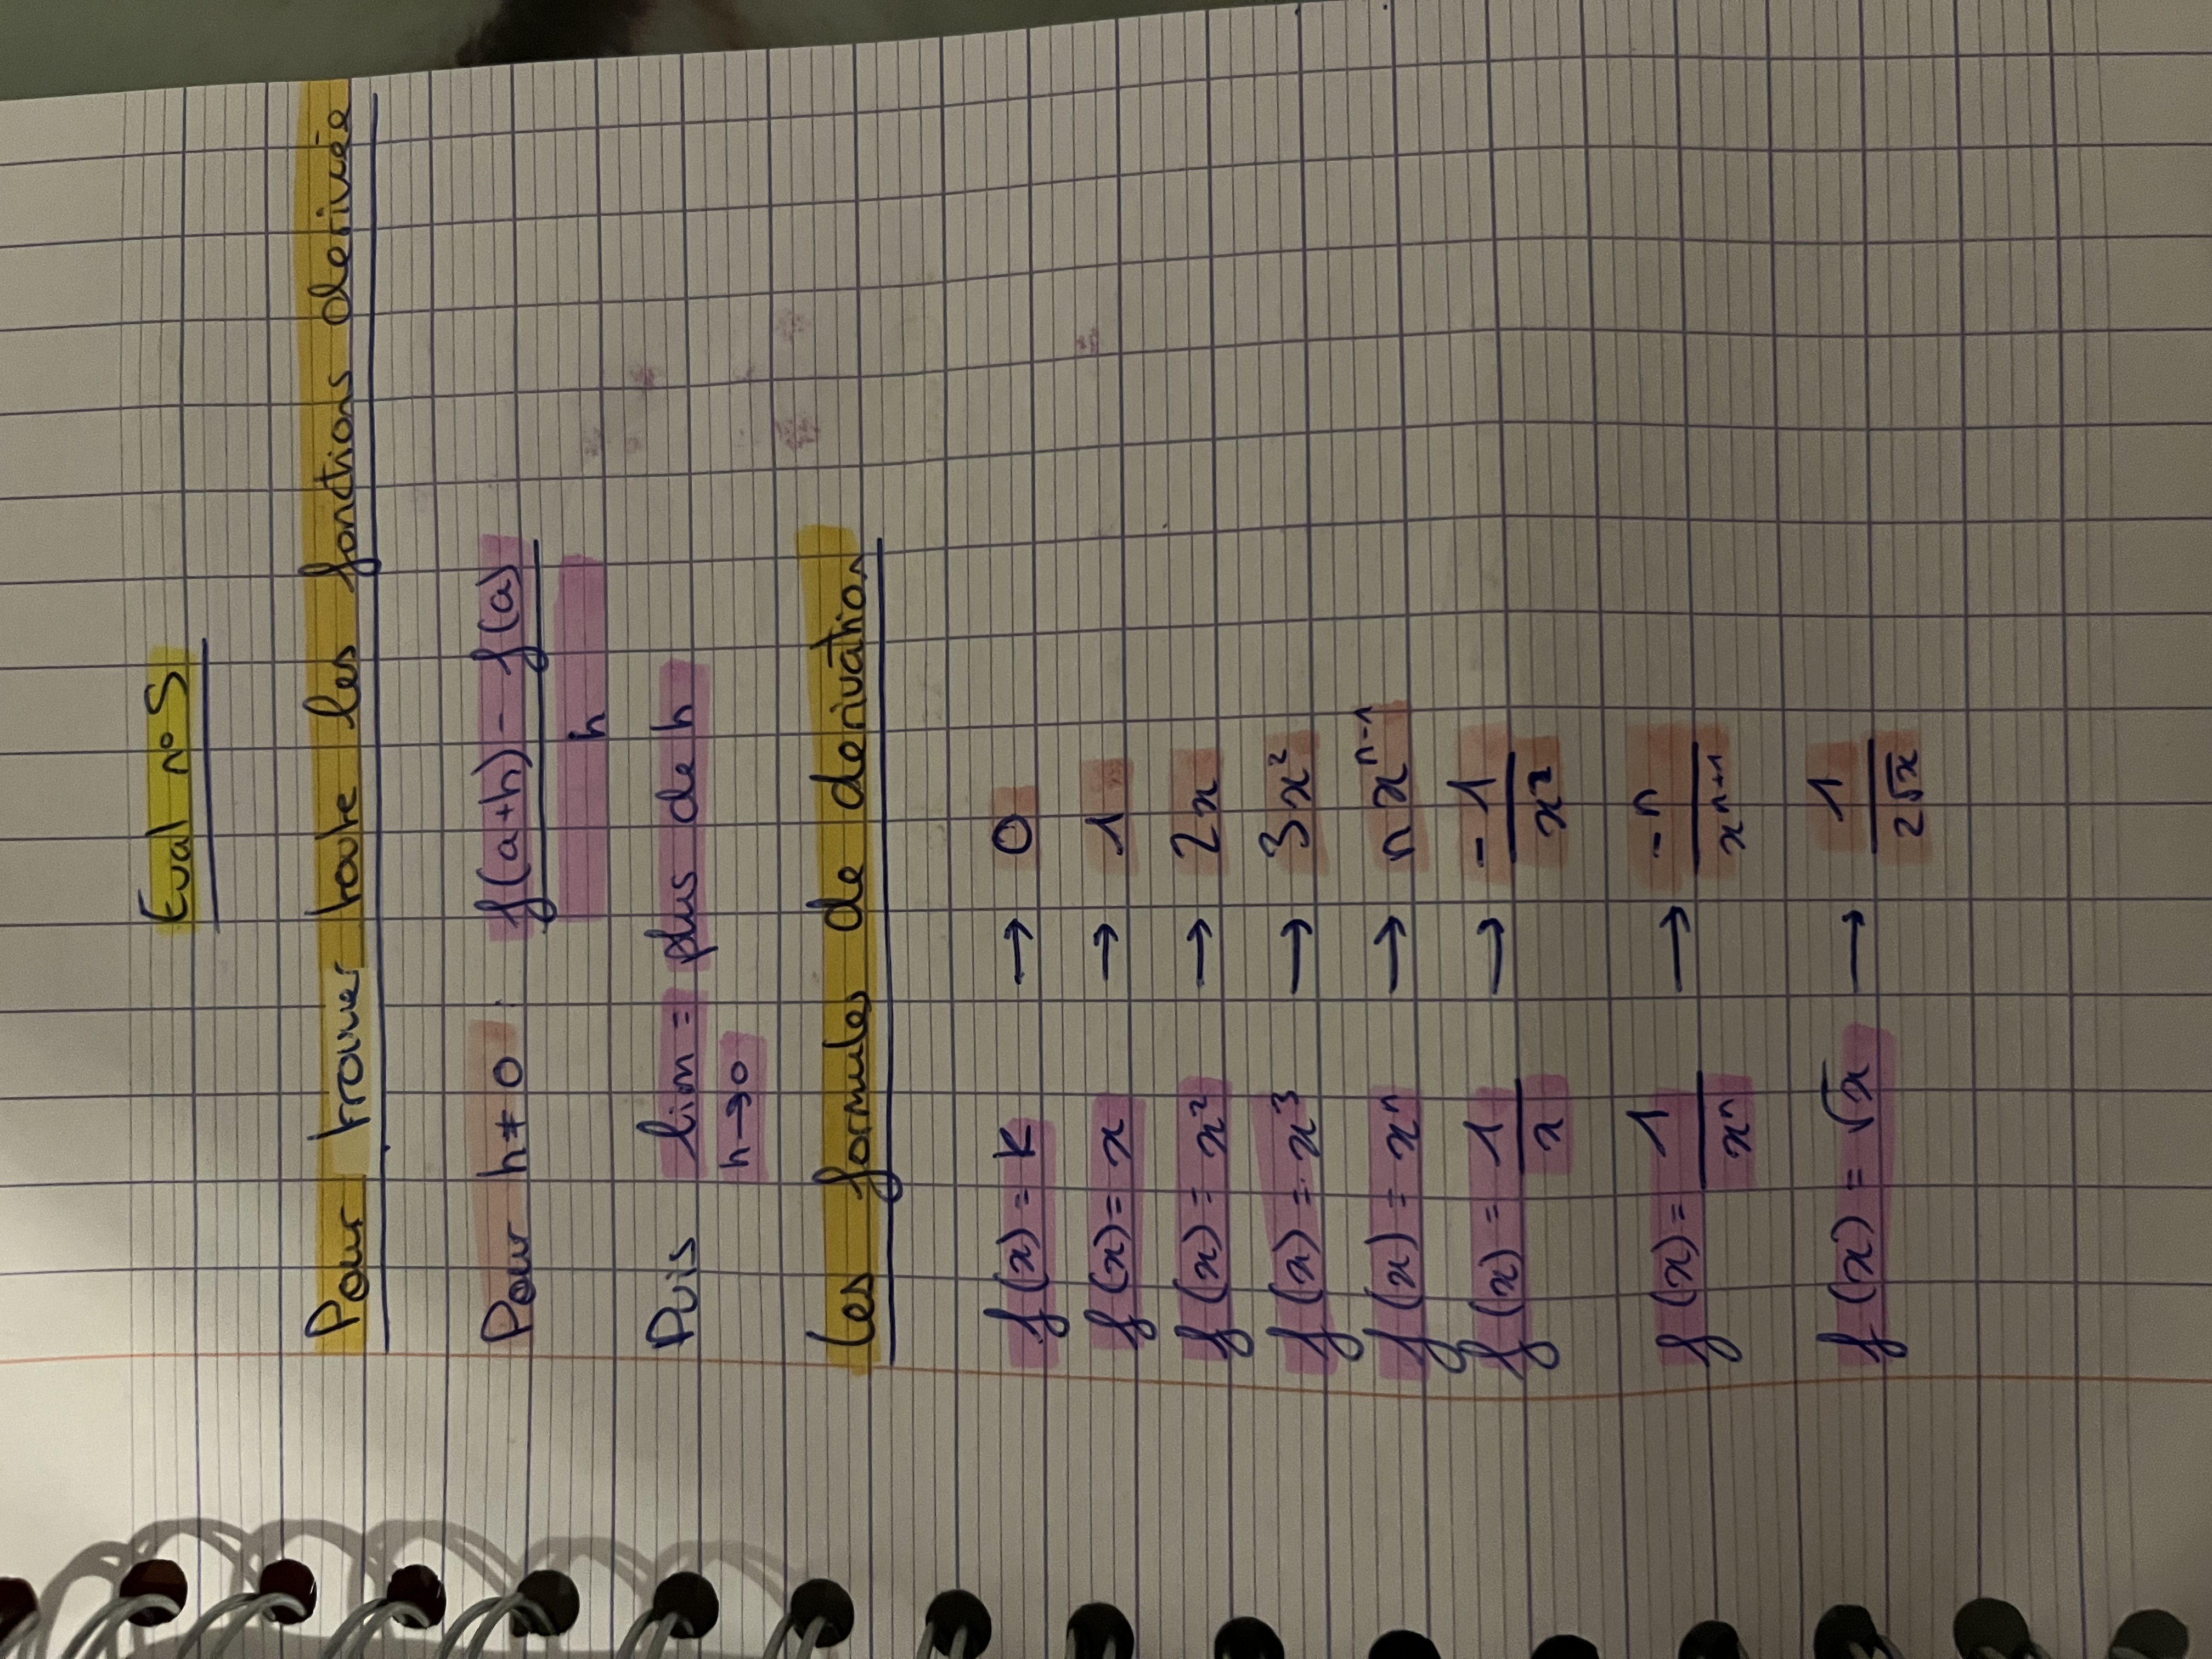 Eval n°5
Pour trouver toute les fonctions derivée
Pour h≠0 : f(a+h) - f(a)
h
Puis lim = plus de h
h→0
Les formules de derivation
f(x) = k → 0
f(x) = x → 1
f(x) = x² → 2x
f(x) = x³ → 3x²
f(x) = xⁿ → nxⁿ⁻¹
f(x) = 1/x → -1/x²
f(x) = 1/xⁿ → -n/xⁿ⁺¹
f(x) = √x → 1/2√x